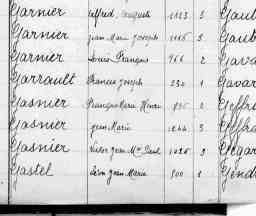 Garnier Alfred Auguste 1123 2 Gaut
Garnier Jean Marie Joseph 1165 3 Gaut
Garnier Louis François 966 2 Gava
Garrault Francis Joseph 230 1 Gavar
Gasnier François Marie Henri 2 Geffr
Gasnier Jean Marie 1244 3 Geffra
Gasnier Victor Jean Mie Paul 1026 2 Gégar
Gastel Léon Jean Marie 800 1 Gend